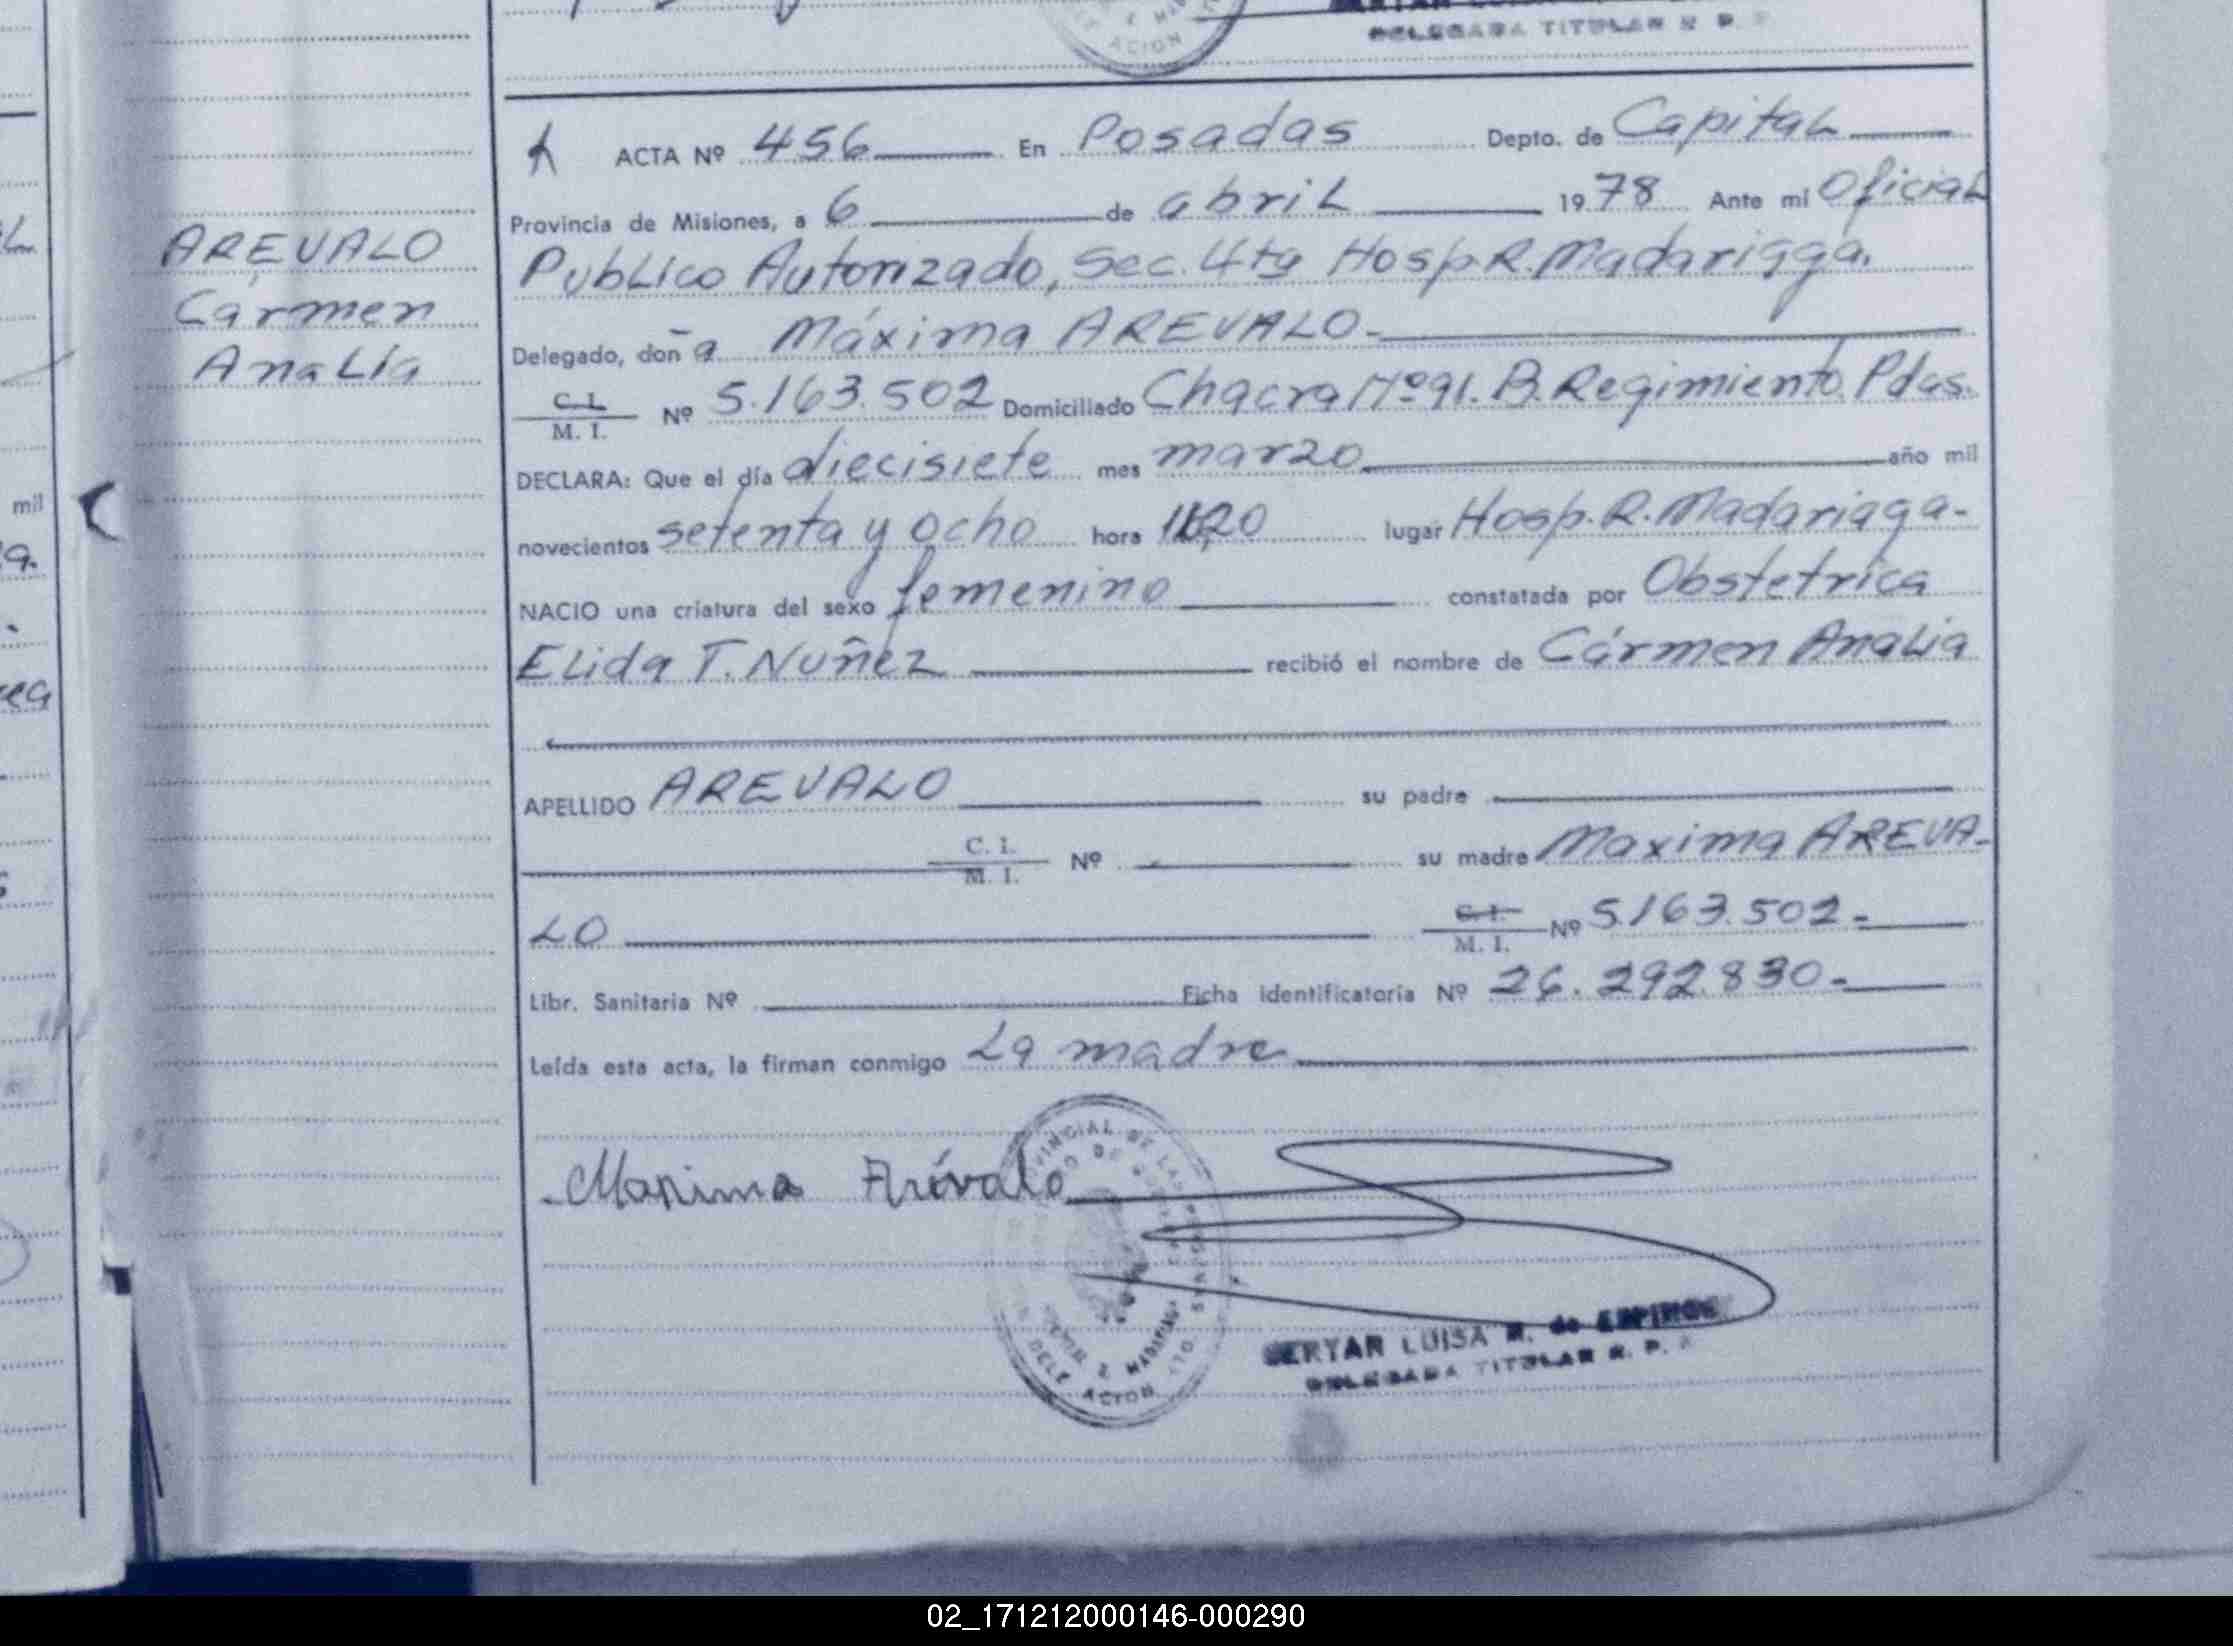 DELEGADA TITULAR R. P.
ACTA Nº 456 En Posadas Depto. de Capital
Provincia de Misiones, a 6 de abril 1978 Ante mí Oficial
Publico Autorizado, Sec. 4ta Hosp R. Madariaga.
Delegado, doña Máxima AREVALO-
C. I. / M. I. Nº 5.163.502 Domiciliado Chacra Nº 91. B. Regimiento. Pdas.
DECLARA: Que el día diecisiete mes marzo año mil
novecientos setenta y ocho hora lugar Hosp. R. Madariaga-
NACIO una criatura del sexo femenino constatada por Obstetrica
Elida T. Nuñez recibió el nombre de Cármen Analia
APELLIDO AREVALO su padre
C. I. / M. I. Nº su madre Maxima AREVA-
LO C. I. / M. I. Nº 5.163.502-
Libr. Sanitaria Nº Ficha identificatoria Nº 26.292.830-
Leída esta acta, la firman conmigo La madre
AREVALO
Carmen
Analía
Maxima Arévalo
LUISA R. de
DELEGADA TITULAR R. P.
mil
02_171212000146-000290